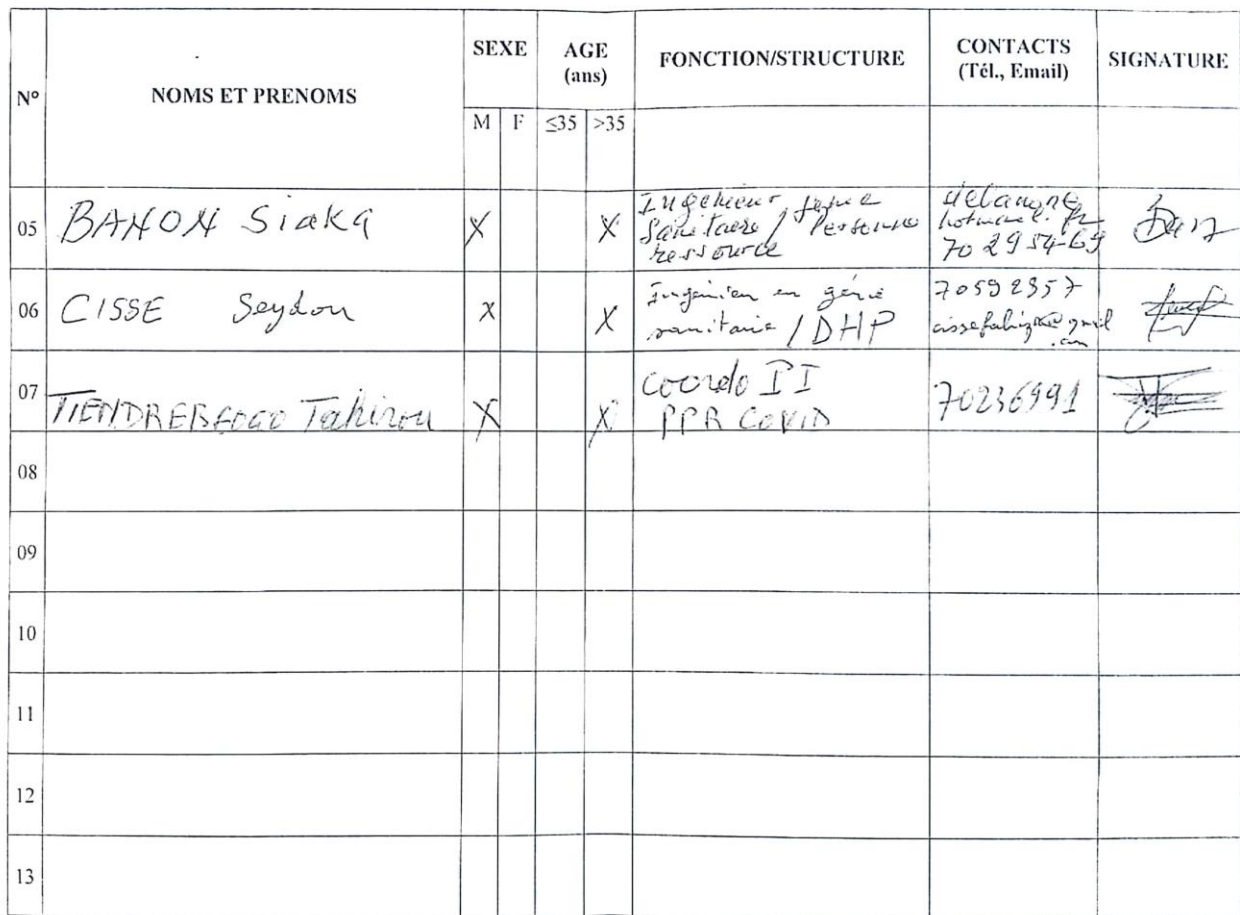 N° NOMS ET PRENOMS SEXE AGE (ans) FONCTION/STRUCTURE CONTACTS (Tél., Email) SIGNATURE
M F ≤35 >35
05 BANON Siaka X X Ingénieur génie
sanitaire / Personne
ressource
hotmail.fr
70 29 54-69
06 CISSE Seydou X X Ingénieur en génie
sanitaire / DHP
70592957
07 TIENDREBEOGO Tahirou X X Coordo II
PPR COVID
70236991
08
09
10
11
12
13